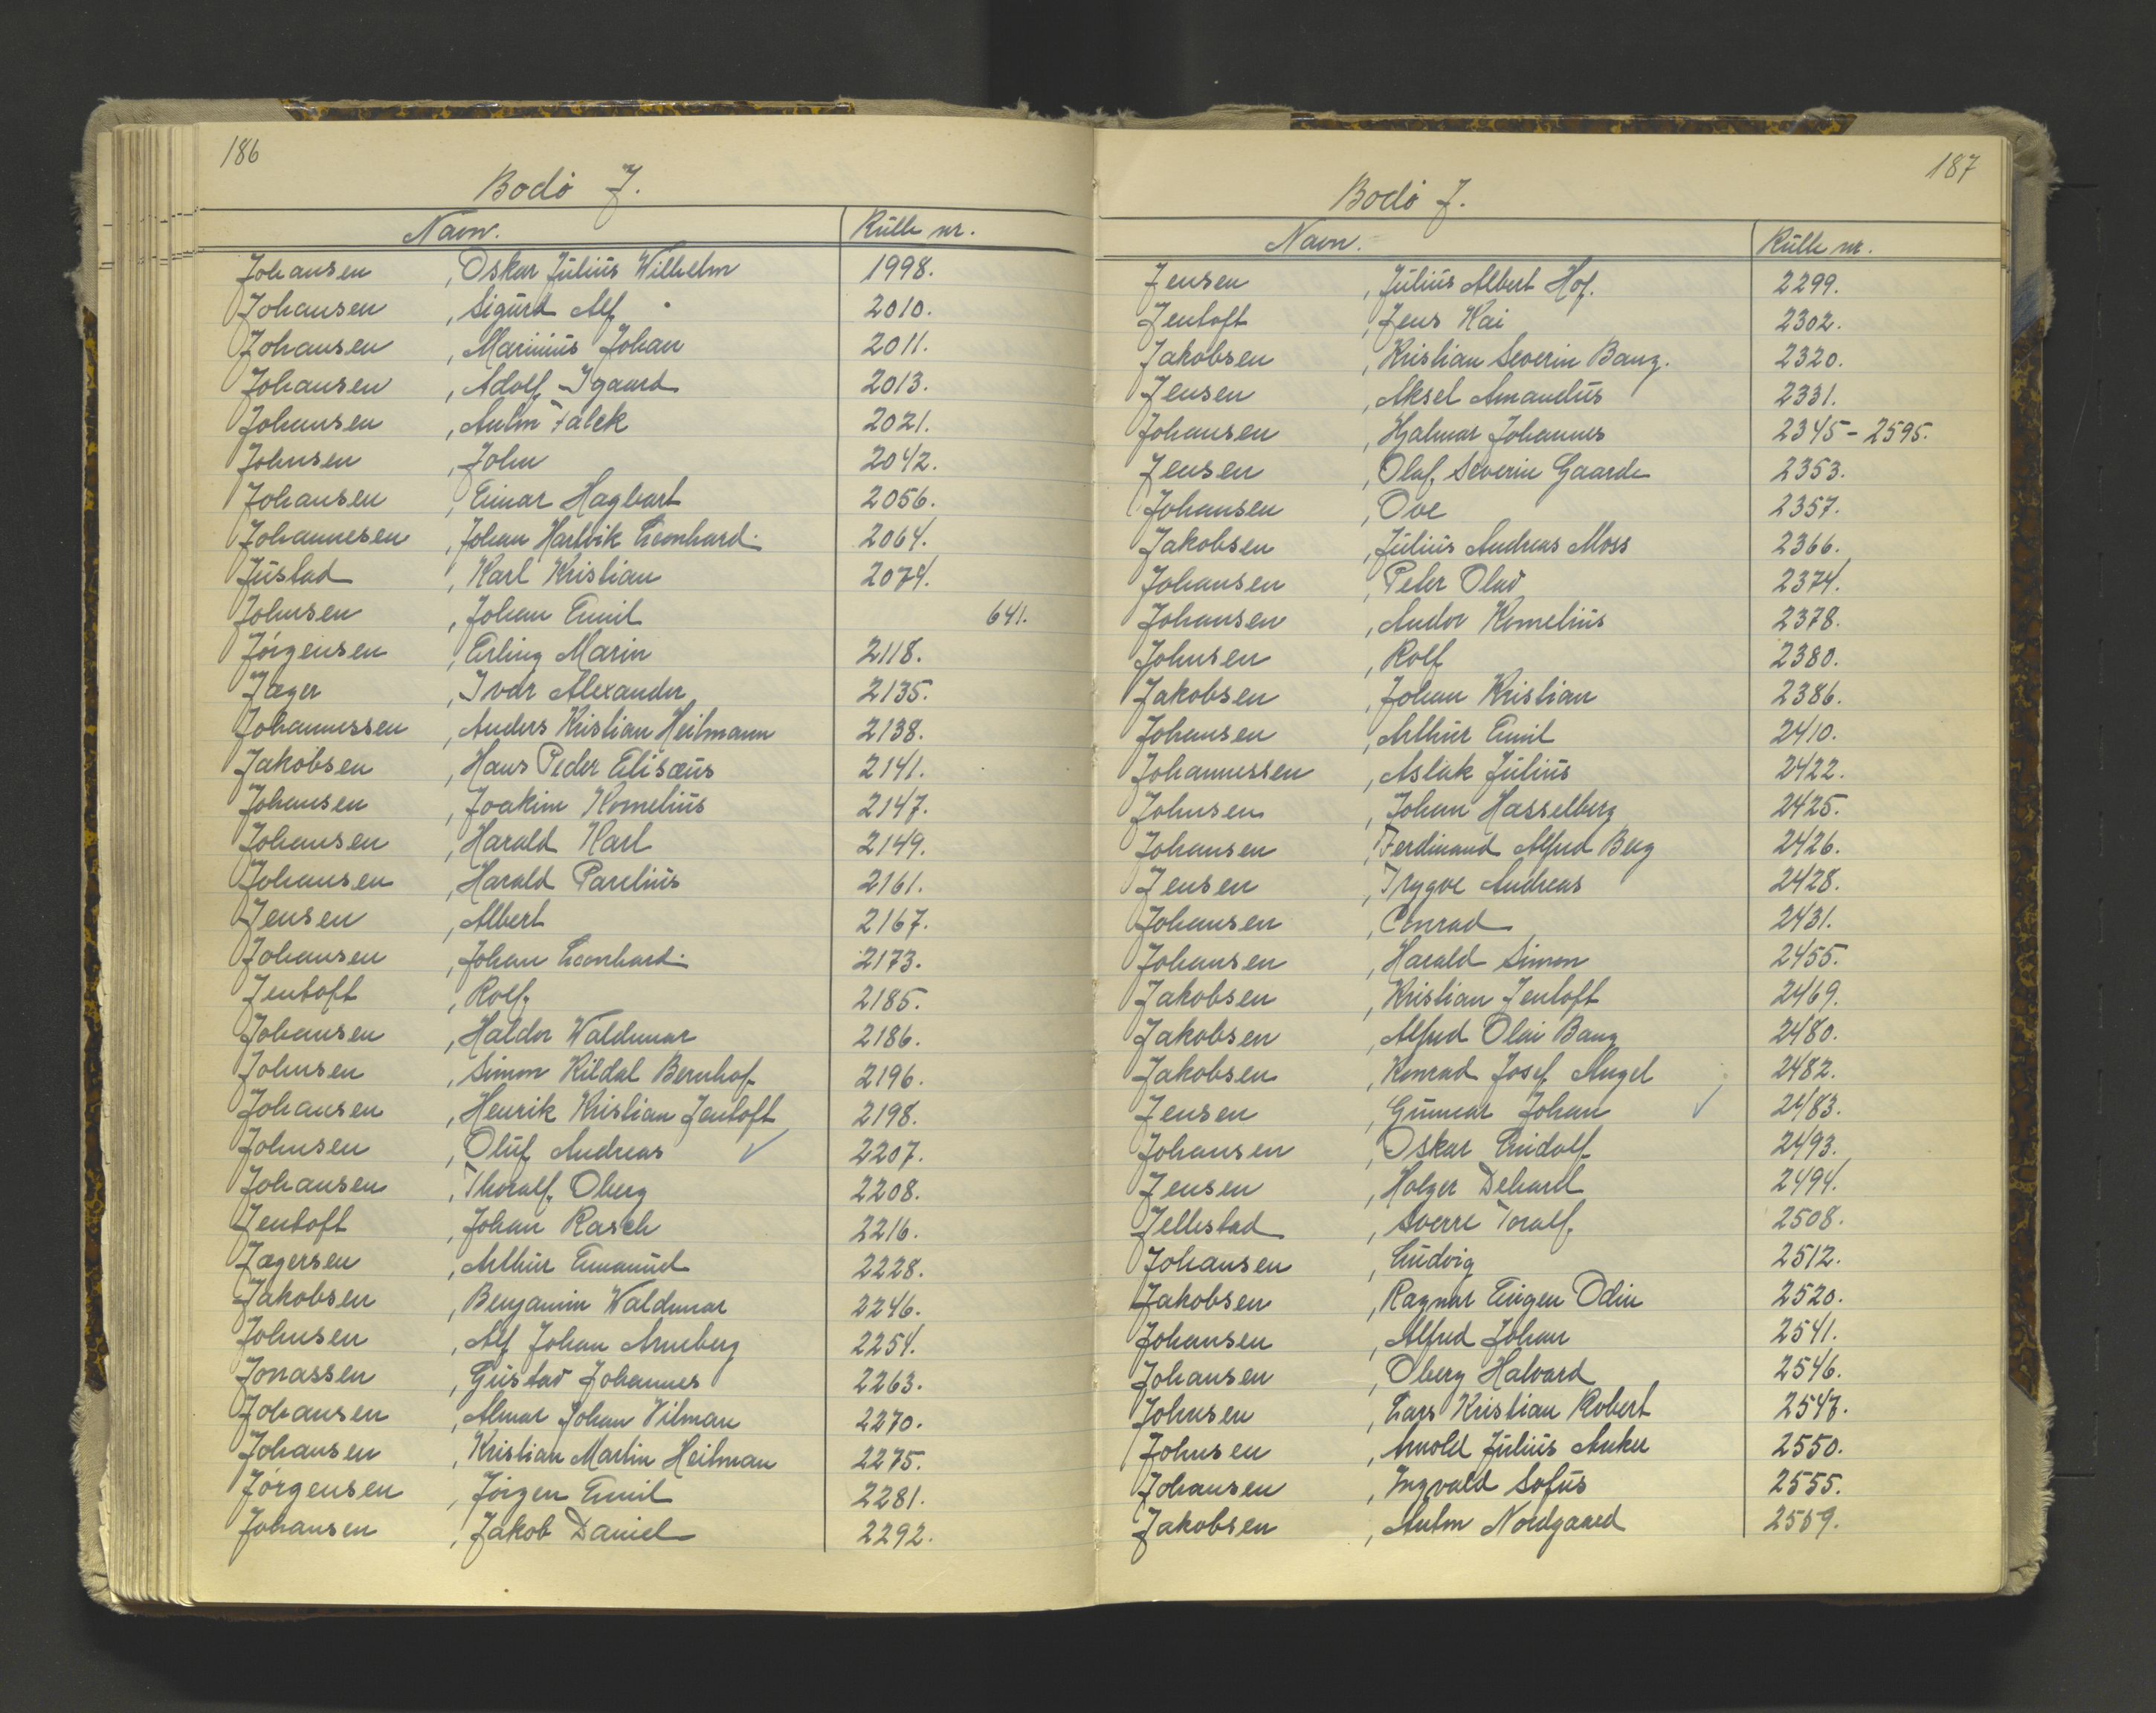 186
Bodø J.
Navn. Rulle nr.
Johansen , Oskar Julius Wilhelm 1998.
Johansen , Sigurd Alf 2010.
Johansen , Marinius Johan 2011.
Johansen , Adolf Ygaard 2013.
Johansen , Anton Falck 2021.
Johnsen , John 2042.
Johansen , Einar Hagbart 2056.
Johannesen , Johan Hartvik Leonhard 2064.
Justad , Karl Kristian 2074.
Johnsen , Johan Emil 641.
Jörgensen , Erling Marin 2118.
Jæger , Ivar Alexander 2135.
Johannessen , Anders Kristian Heitmann 2138.
Jakobsen , Hans Peder Elisæus 2141.
Johansen , Joakim Kornelius 2147.
Johansen , Harald Karl 2149.
Johansen , Harald Parelius 2161.
Jensen , Albert 2167.
Johansen , Johan Leonhard 2173.
Jentoft , Rolf 2185.
Johansen , Haldor Waldemar 2186.
Johnsen , Simon Kildal Bernhof 2196.
Johansen , Henrik Kristian Jentoft 2198.
Johnsen , Oluf Andreas ✓ 2207.
Johansen , Thoralf Oberg 2208.
Jentoft , Johan Rasch 2216.
Jægersen , Arthur Emanuel 2228.
Jakobsen , Benjamin Waldemar 2246.
Johnsen , Alf Johan Arneberg 2254.
Jonassen , Gustav Johannes 2263.
Johansen , Almar Johan Vilman 2270.
Johansen , Kristian Martin Heitman 2275.
Jörgensen , Jörgen Emil 2281.
Johansen , Jakob Daniel 2292.
187
Bodø J.
Navn. Rulle nr.
Jensen , Julius Albert Hof. 2299.
Jentoft , Jens Kai 2302.
Jakobsen , Kristian Severin Bang. 2320.
Jensen , Aksel Amandus 2331.
Johansen , Hjalmar Johannes 2345 - 2595.
Jensen , Olaf Severin Gaarde 2353.
Johansen , Ove 2357.
Jakobsen , Julius Andreas Moss 2366.
Johansen , Peter Olav 2374.
Johansen , Andor Kornelius 2378.
Johnsen , Rolf 2380.
Jakobsen , Johan Kristian 2386.
Johansen , Arthur Emil 2410.
Johannessen , Aslak Julius 2422.
Johnsen , Johan Hasselberg 2425.
Johansen , Ferdinand Alfred Berg 2426.
Jensen , Trygve Andreas 2428.
Johansen , Conrad 2431.
Johansen , Harald Simon 2455.
Jakobsen , Kristian Jentoft 2469.
Jakobsen , Alfred Olai Bang 2480.
Jakobsen , Konrad Josef Angel 2482.
Jensen , Gunnar Johan ✓ 2483.
Johansen , Oskar Eindolf 2493.
Jensen , Holger Dehard 2494.
Jellestad , Sverre Toralf 2508.
Johansen , Ludvig 2512.
Jakobsen , Ragnar Eugen Odin 2520.
Johansen , Alfred Johan 2541.
Johansen , Oberg Halvard 2546.
Johnsen , Lars Kristian Robert 2547.
Johnsen , Arnold Julius Anker 2550.
Johansen , Ingvald Sofus 2555.
Jakobsen , Anton Nordgaard 2559.